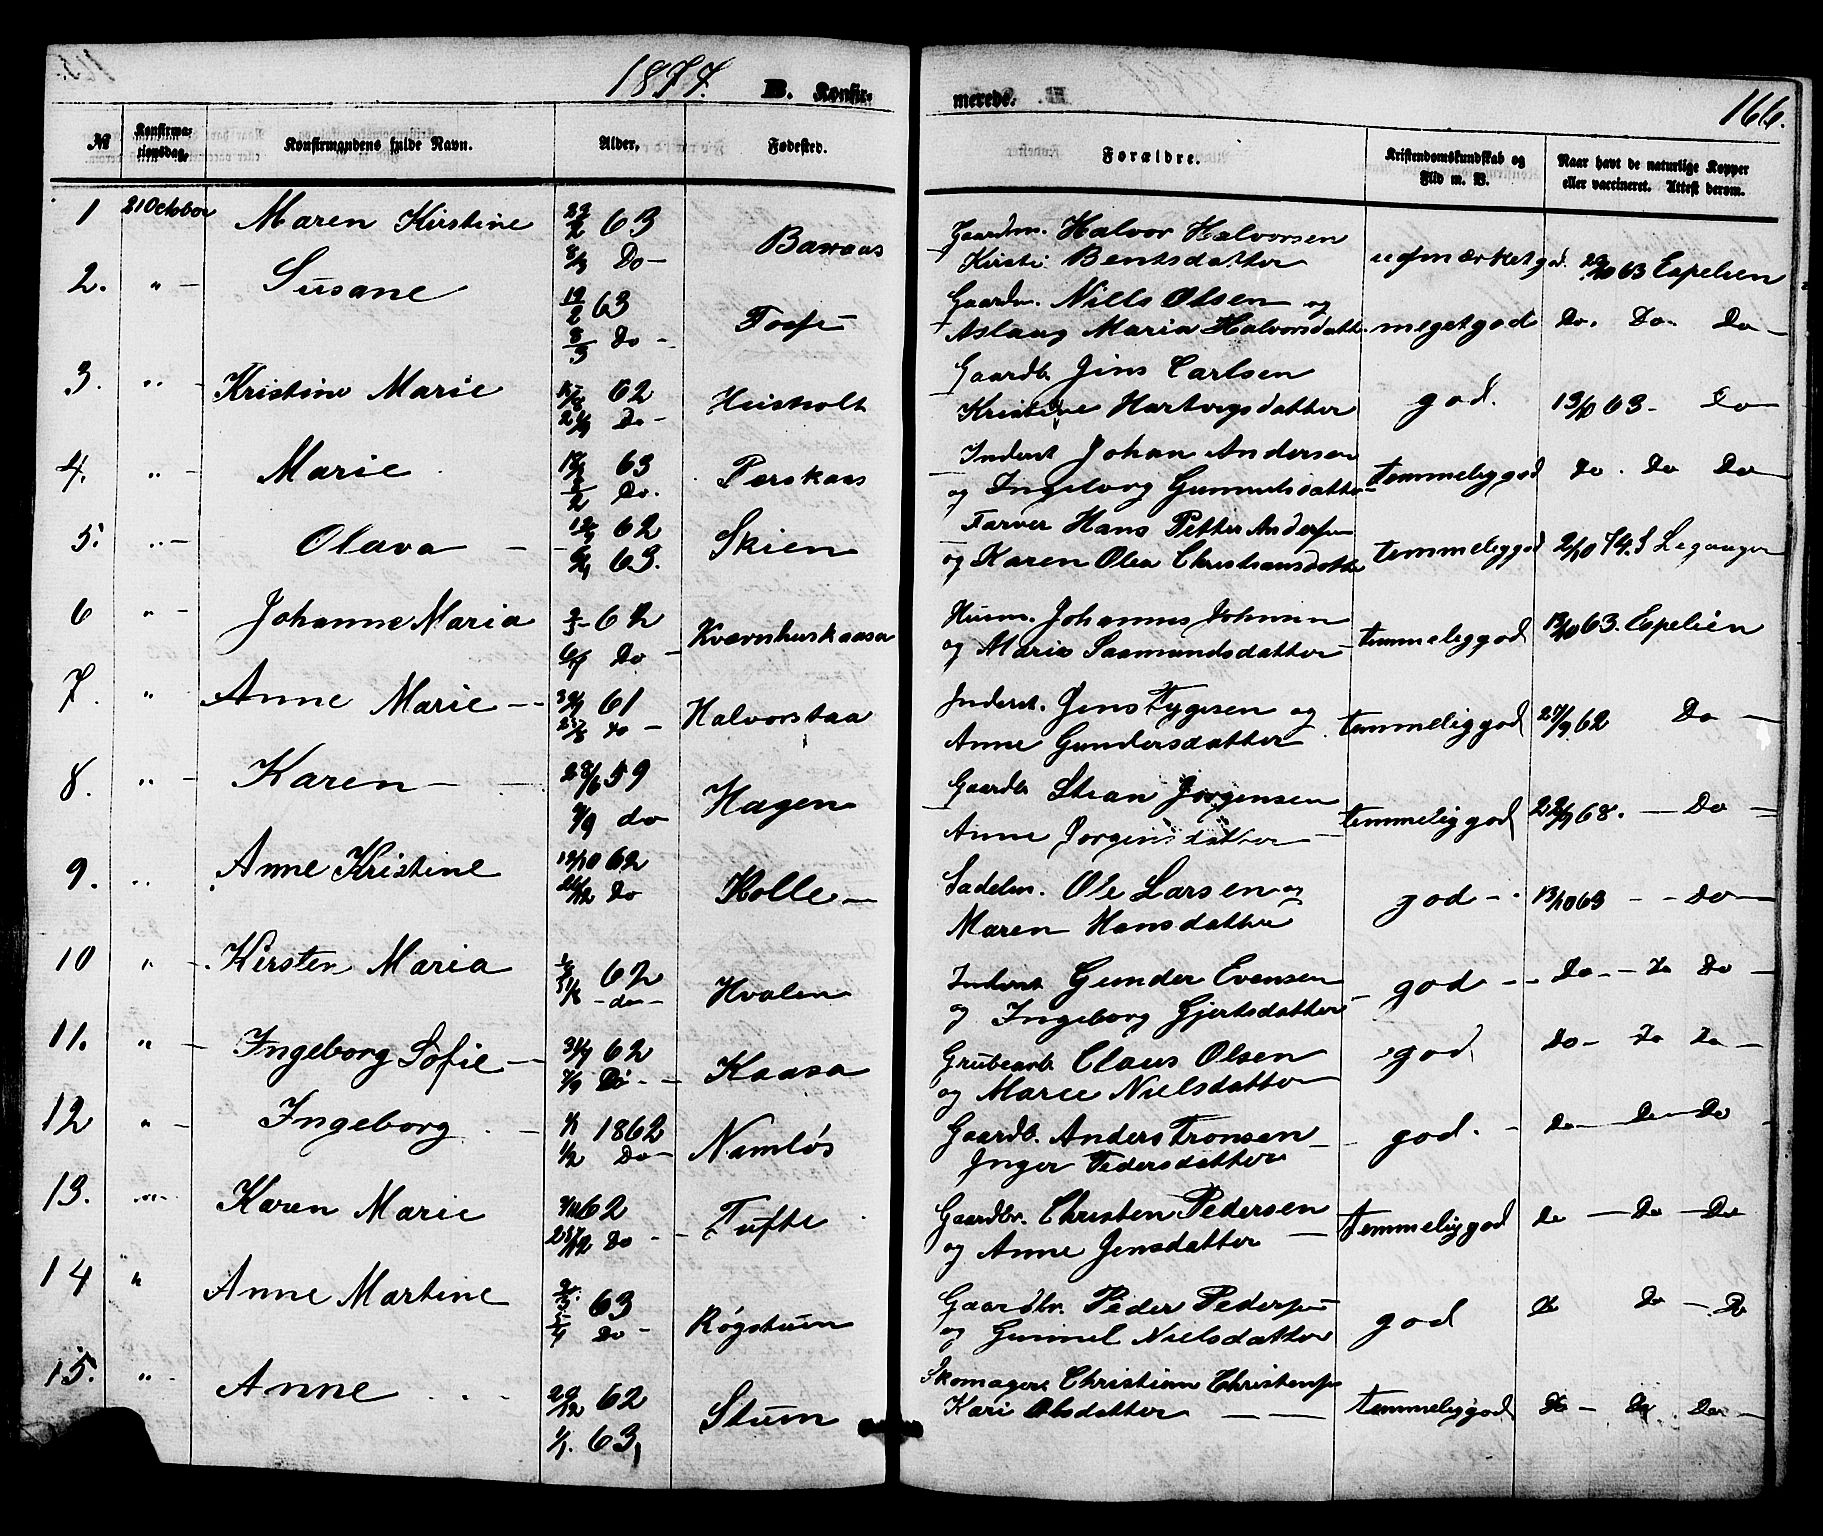 1877. B. Konfir-
merede. 166.
№ Konfirma-tionsdag. Konfirmandens fulde Navn. Alder. Fødested. Forældre. Kristendomskundskab og Flid m. V. Naar havt de naturlige Kopper eller vaccineret. Attest derom.
1 21 October Maren Kirstine 63 Gaardm. Halvor Halvorsen
Do - Kirsti Bentsdatter 63 Espelien
2. " - Susane 19/2 63 Gaardm. Niels Olsen og
8/3 Do - Aslaug Maria Halvorsdatt. meget god Do. Do. Do -
3. " - Kristine Marie 62 Gaardb. Jens Carlsen
Do - Heisholt Kristine Hartvigsdatter god. 13/10 63 - Do
4. " - Marie 63 Johan Andersen
Do. Perskaas og Ingeborg Gunnulsdatter temmelig god Do. Do Do
5. " - Olava - 62 Skien Farver Hans Petter Andersen
63. og Karen Olea Christiansdatter temmelig god 2/10 74. S Leganger
6 " - Johanne Maria 62 Husm. Johannes Johnsen
Do - Kværnhuskaasa og Maria Saamundsdatter temmelig god 13/10 63. Espelien
7. " Anne Marie - - 61 Jens Tygesen og
do - Halvorskaa Anne Gundersdatter. temmelig god 62 Do -
8. " - Karen - - 28/6 59 Gaardb. Jørgensen
7/9 do Hagen Anne Jørgensdatter temmelig god 68. - Do -
9. " Anne Kristine 12/10 62 Sadelm. Ole Larsen og
26/12 Do Kolle - Maren Hansdatter god - 13/10 63 - - Do -
10 " - Kirsten Maria 62 Gunder Evensen
- do - Hvalen og Ingeborg Gjertsdatter god - - Do - - Do Do
11. " - Ingeborg Sofie - 31/7 62 Grubearb. Claus Olsen
7/9 Do - - Kaasa og Maree Nielsdatter god Do - Do Do -
12 " - Ingeborg - 1862 Gaardb. Anders Tronsen
Do - Namløs Inger Pedersdatter god. - Do - Do - Do
13. " - Karen Marie 62 Gaardbr. Christen Pedersen
Do - Tufte og Anne Jensdatter - temmelig god Do - Do - Do
14 " Anne Martine 63 Gaardbr. Peder Pedersen
Do - Røgstuen og Gunnel Nielsdatter god Do Do - Do
15. " - Anne 29/12 62 Skomager Christian Christensen
1/1. 63, Stuen Kari Olsdatter - - - temmelig god Do - Do. Do -